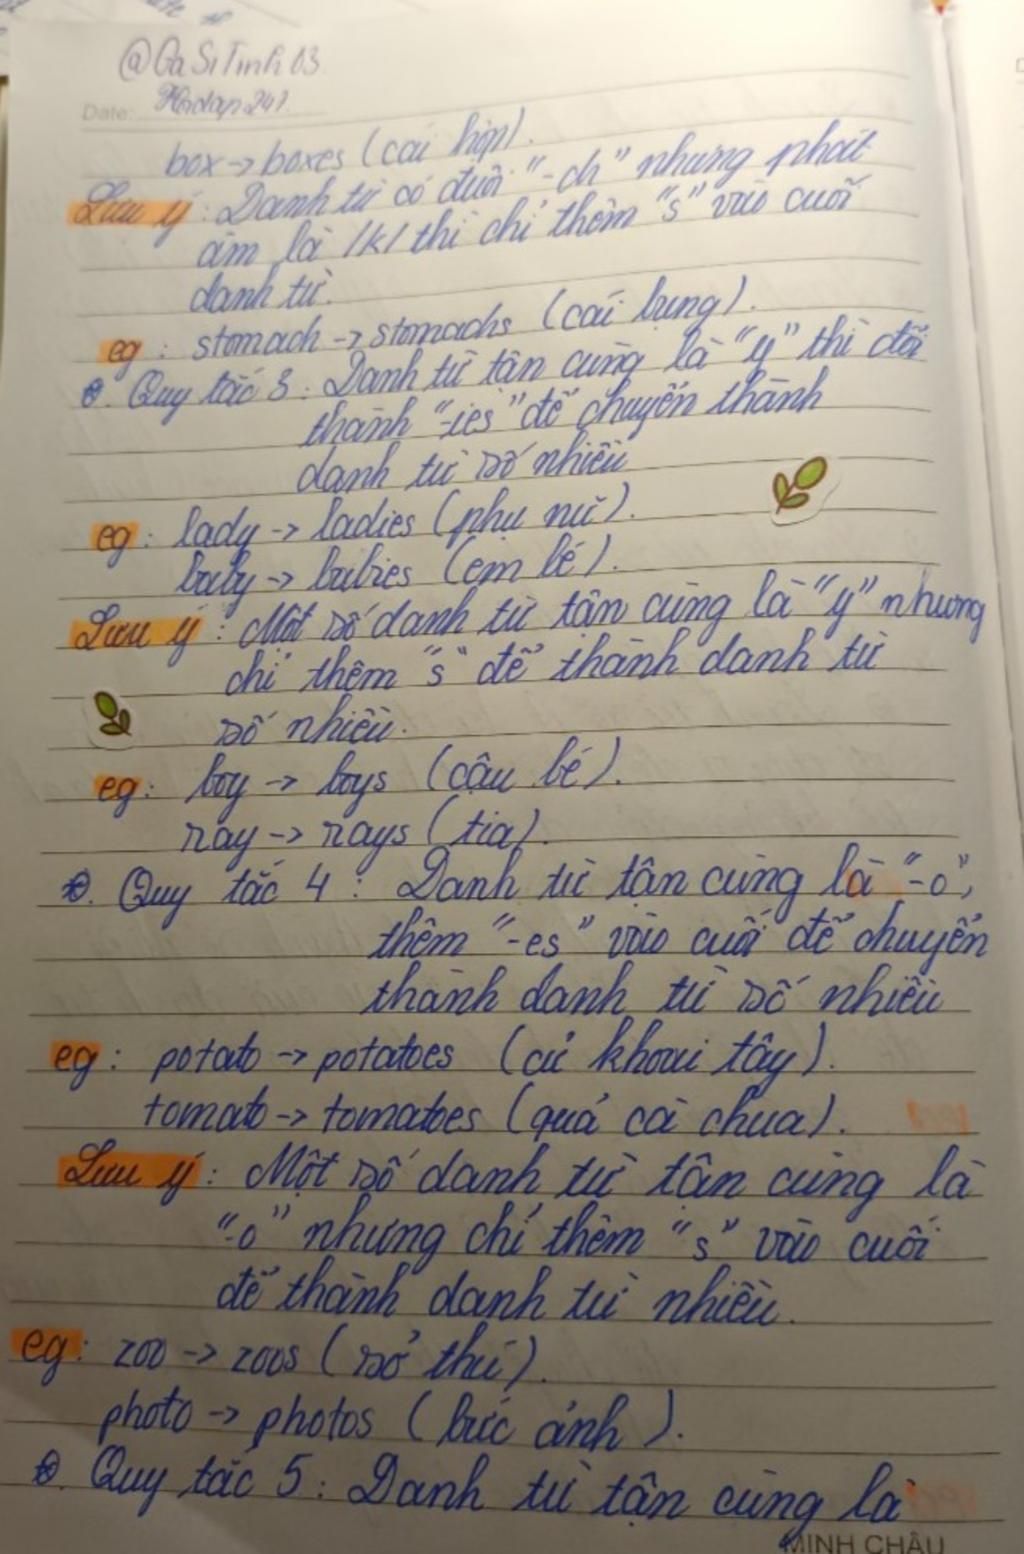 @Ga Si Tinh 03
Date: Hoidap247
box → boxes (cái hộp).
Lưu ý: Danh từ có đuôi "-ch" nhưng phát
âm là /k/ thì chỉ thêm "s" vào cuối
danh từ.
eg: stomach → stomachs (cái bụng).
Quy tắc 3: Danh từ tận cùng là "y" thì đổi
thành "-ies" để chuyển thành
danh từ số nhiều
eg: lady → ladies (phụ nữ).
baby → babies (em bé).
Lưu ý: Một số danh từ tận cùng là "y" nhưng
chỉ thêm "s" để thành danh từ
số nhiều.
eg: boy → boys (cậu bé).
ray → rays (tia).
Quy tắc 4: Danh từ tận cùng là "-o",
thêm "-es" vào cuối để chuyển
thành danh từ số nhiều
eg: potato → potatoes (củ khoai tây).
tomato → tomatoes (quả cà chua).
Lưu ý: Một số danh từ tận cùng là
"-o" nhưng chỉ thêm "s" vào cuối
để thành danh từ nhiều.
eg: zoo → zoos (sở thú).
photo → photos (bức ảnh).
Quy tắc 5: Danh từ tận cùng là
MINH CHÂU